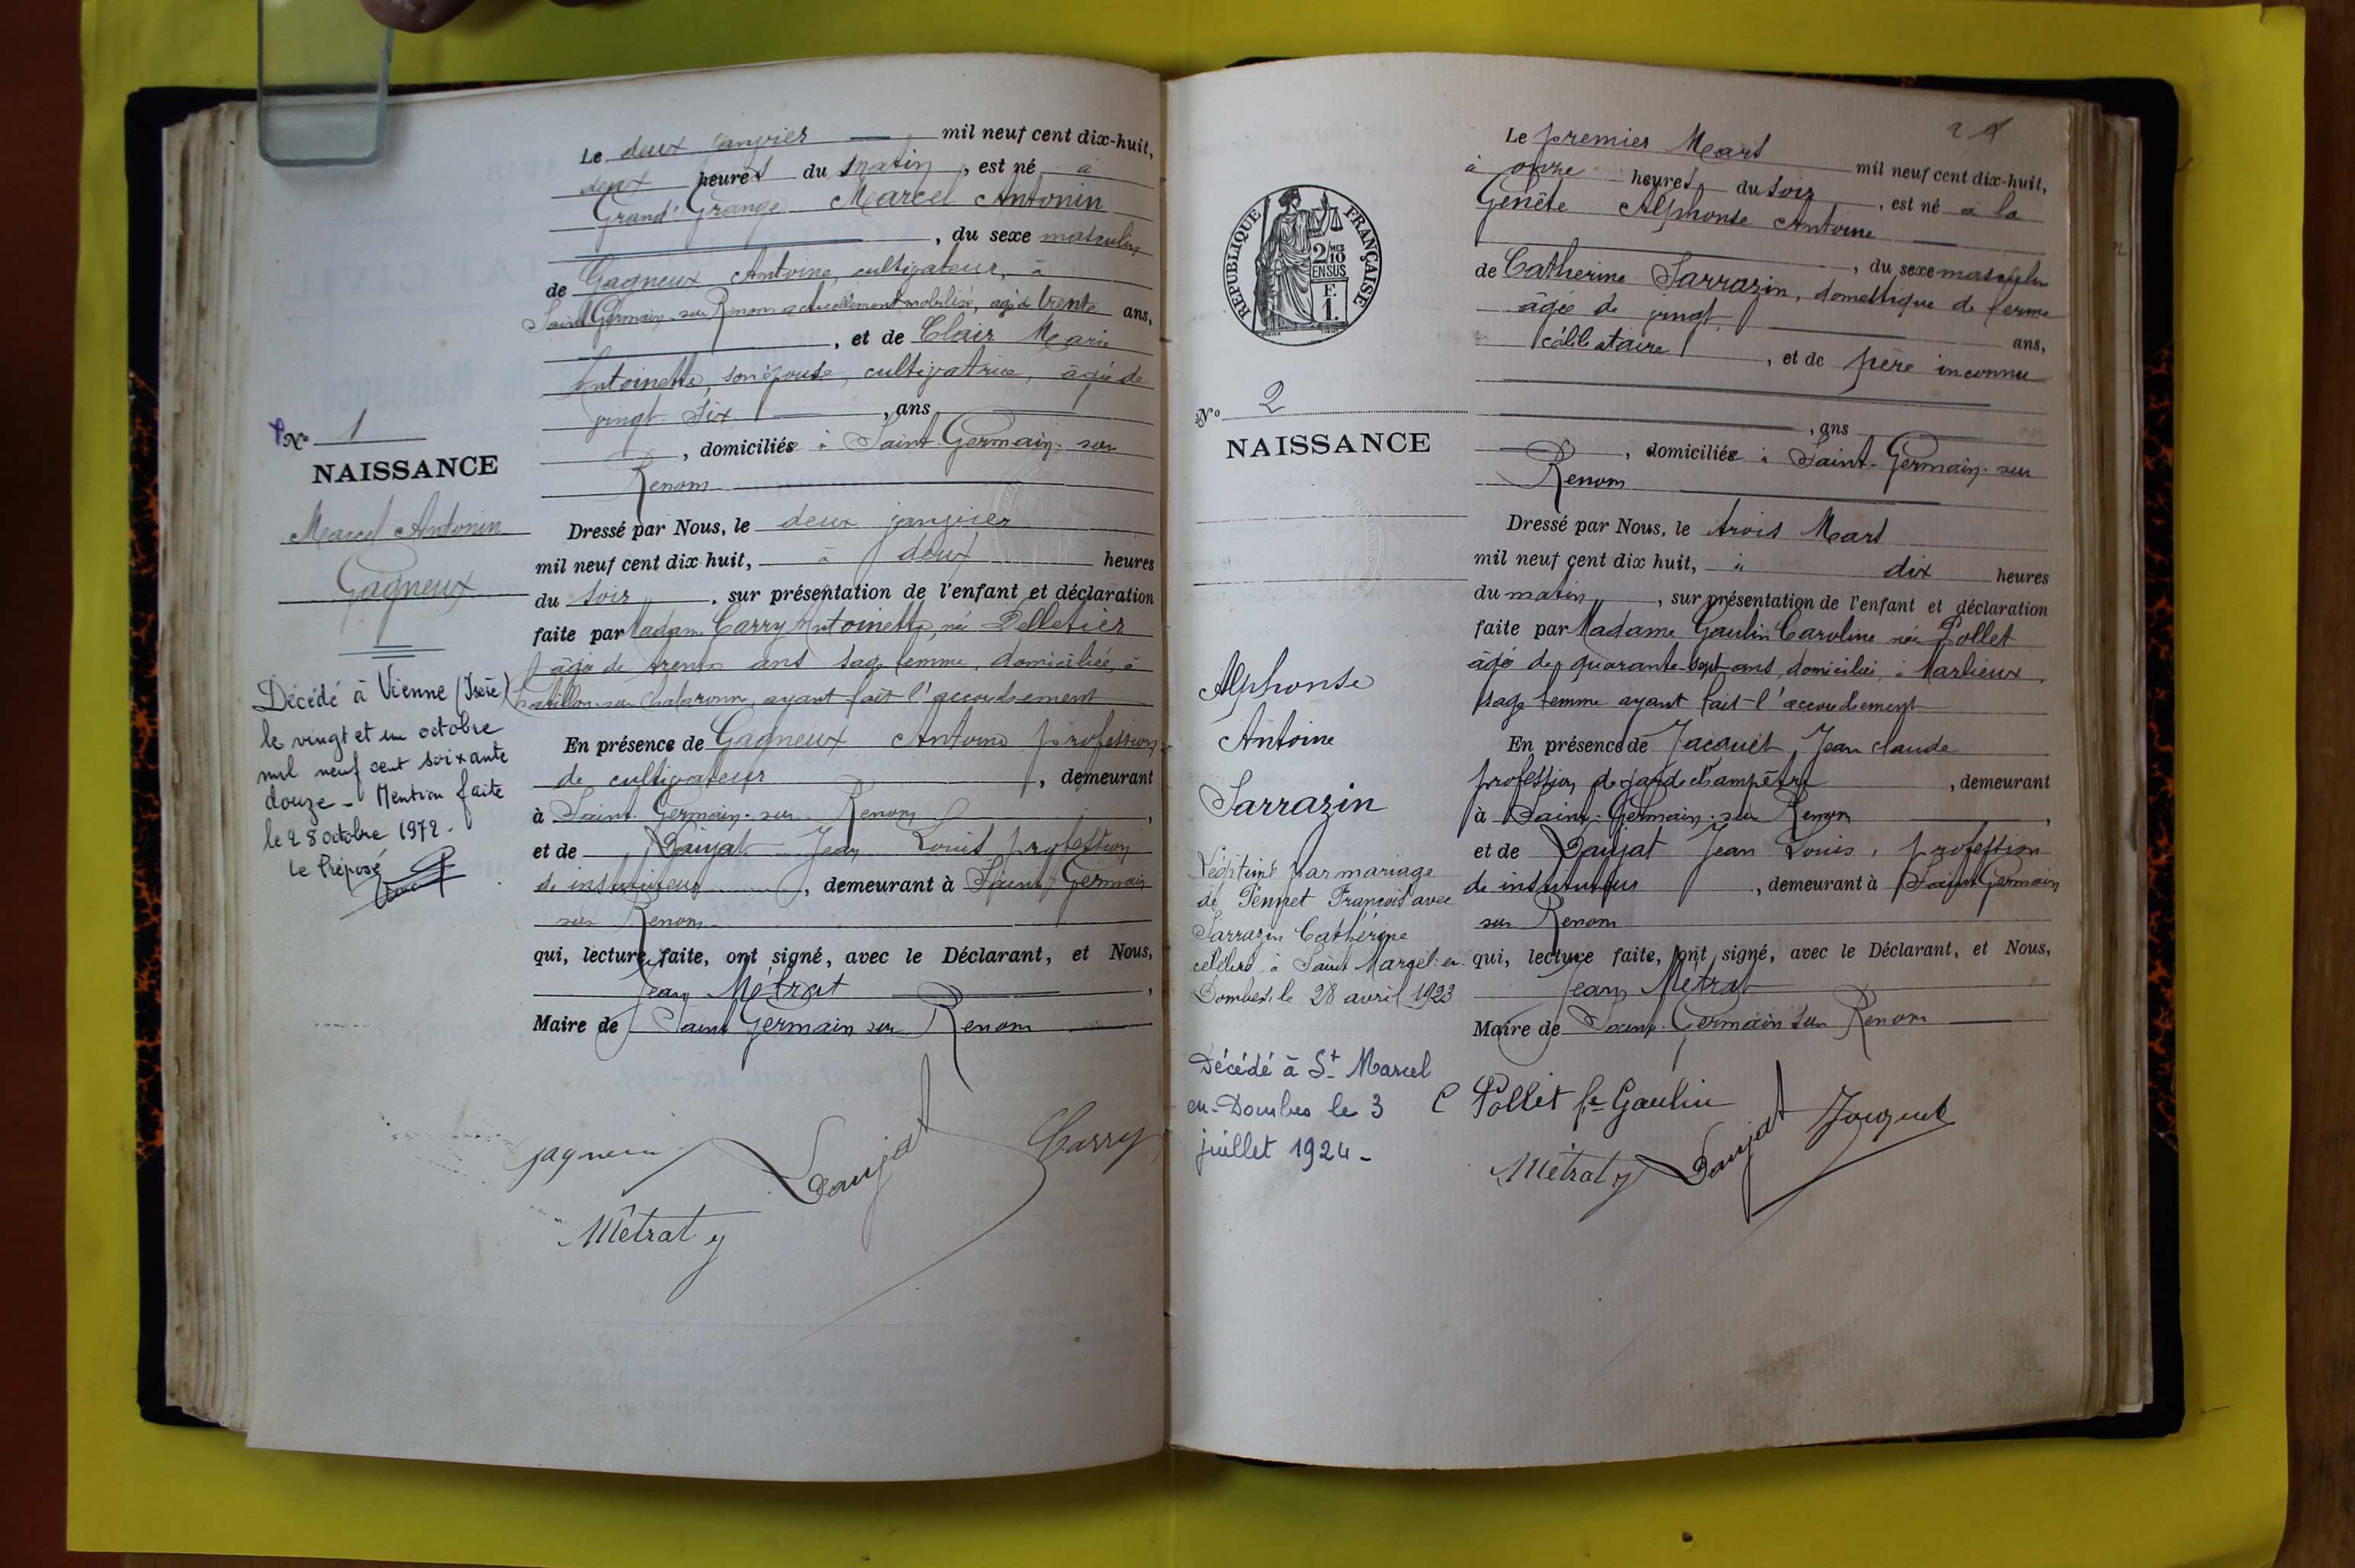 Le deux janvier mil neuf cent dix-huit,
deux heures du matin, est né à
Grand' Grange Marcel Antonin
, du sexe masculin
de Gagneux Antoine, cultivateur, à
Saint Germain sur Renom actuellement mobilisé, âgé de trente ans,
, et de Clair Marie
Antoinette, son épouse, cultivatrice, âgée de
vingt six , ans
, domiciliés à Saint-Germain-sur
Renom
Dressé par Nous, le deux janvier
mil neuf cent dix huit, à deux heures
du soir , sur présentation de l'enfant et déclaration
faite par Madame Carry Antoinette, née Pelletier
âgée de trente ans sage femme, domiciliée, à
Chatillon-sur Chalaronne, ayant fait l'accouchement
En présence de Gagneux Antoine profession
de cultivateur , demeurant
à Saint-Germain-sur Renom ,
et de Daujat Jean Louis profession
de instituteur , demeurant à Saint Germain
sur Renom
qui, lecture faite, ont signé, avec le Déclarant, et Nous,
Jean Métrat ,
Maire de Saint Germain sur Renom
gagneux Daujat Carry
Métrat
N° 1
NAISSANCE
Marcel Antonin
Gagneux
Décédé à Vienne (Isère)
le vingt et un octobre
mil neuf cent soixante
douze - Mention faite
le 28 octobre 1972 -
Le Préposé
2
Le premier Mars mil neuf cent dix-huit,
à onze heures du soir , est né à la
Genête Alphonse Antoine
, du sexe masculin
de Catherine Sarrazin, domestique de ferme
âgée de vingt ans,
célibataire , et de père inconnu
, ans
, domiciliée à Saint-Germain-sur
Renom
Dressé par Nous, le trois Mars
mil neuf cent dix huit, à dix heures
du matin , sur présentation de l'enfant et déclaration
faite par Madame Gaulin Caroline née Pollet
âgé de quarante-sept ans, domiciliée, à Marlieux,
sage femme ayant fait l'accouchement
En présence de Jacquet, Jean claude
profession de garde champêtre , demeurant
à Saint-Germain-sur Renom ,
et de Daujat Jean Louis, profession
de instituteur , demeurant à Saint Germain
sur Renom
qui, lecture faite, ont signé, avec le Déclarant, et Nous,
Jean Métrat
Maire de Saint-Germain sur Renom
C Pollet fe Gaulin
Métrat Daujat Jacquet
REPUBLIQUE FRANÇAISE
2/10 MES
EN SUS
F.
1.
N° 2
NAISSANCE
Alphonse
Antoine
Sarrazin
Légitimé par mariage
de Pennet François avec
Sarrazin Catherine
célébré à Saint Marcel-en
Dombes, le 28 avril 1923
Décédé à St Marcel
en-Dombes le 3
juillet 1924 -